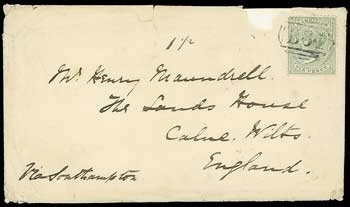 1/-
B64
Mr. Henry Maundrell.
The Sands House
Calne. Wilts.
England.
Via Southampton